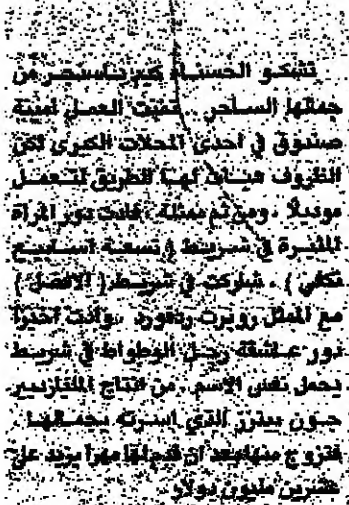 تشكو الحسناء كيم باسنجر من
جمالها الساحر. كانت العمل امينة
صندوق في احدى المحلات الكبرى لكن
الظروف هيأت لها الطريق لتعمل
موديلاً، ومن ثم ممثلة، فأدت دور المرأة
المثيرة في شريط (تسعة اسابيع
) . شاركت في شريط ( الافضل )
مع الممثل روبرت ردفورد. وأدت اخيراً
دور عشيقة رجل الوطواط في شريط
يحمل نفس الاسم. من انتاج الملياردير
جون بيترز الذي اسرته بجمالها.
فتزوج منها بعد ان قدم لها مهراً يزيد على
عشرين مليون دولار.